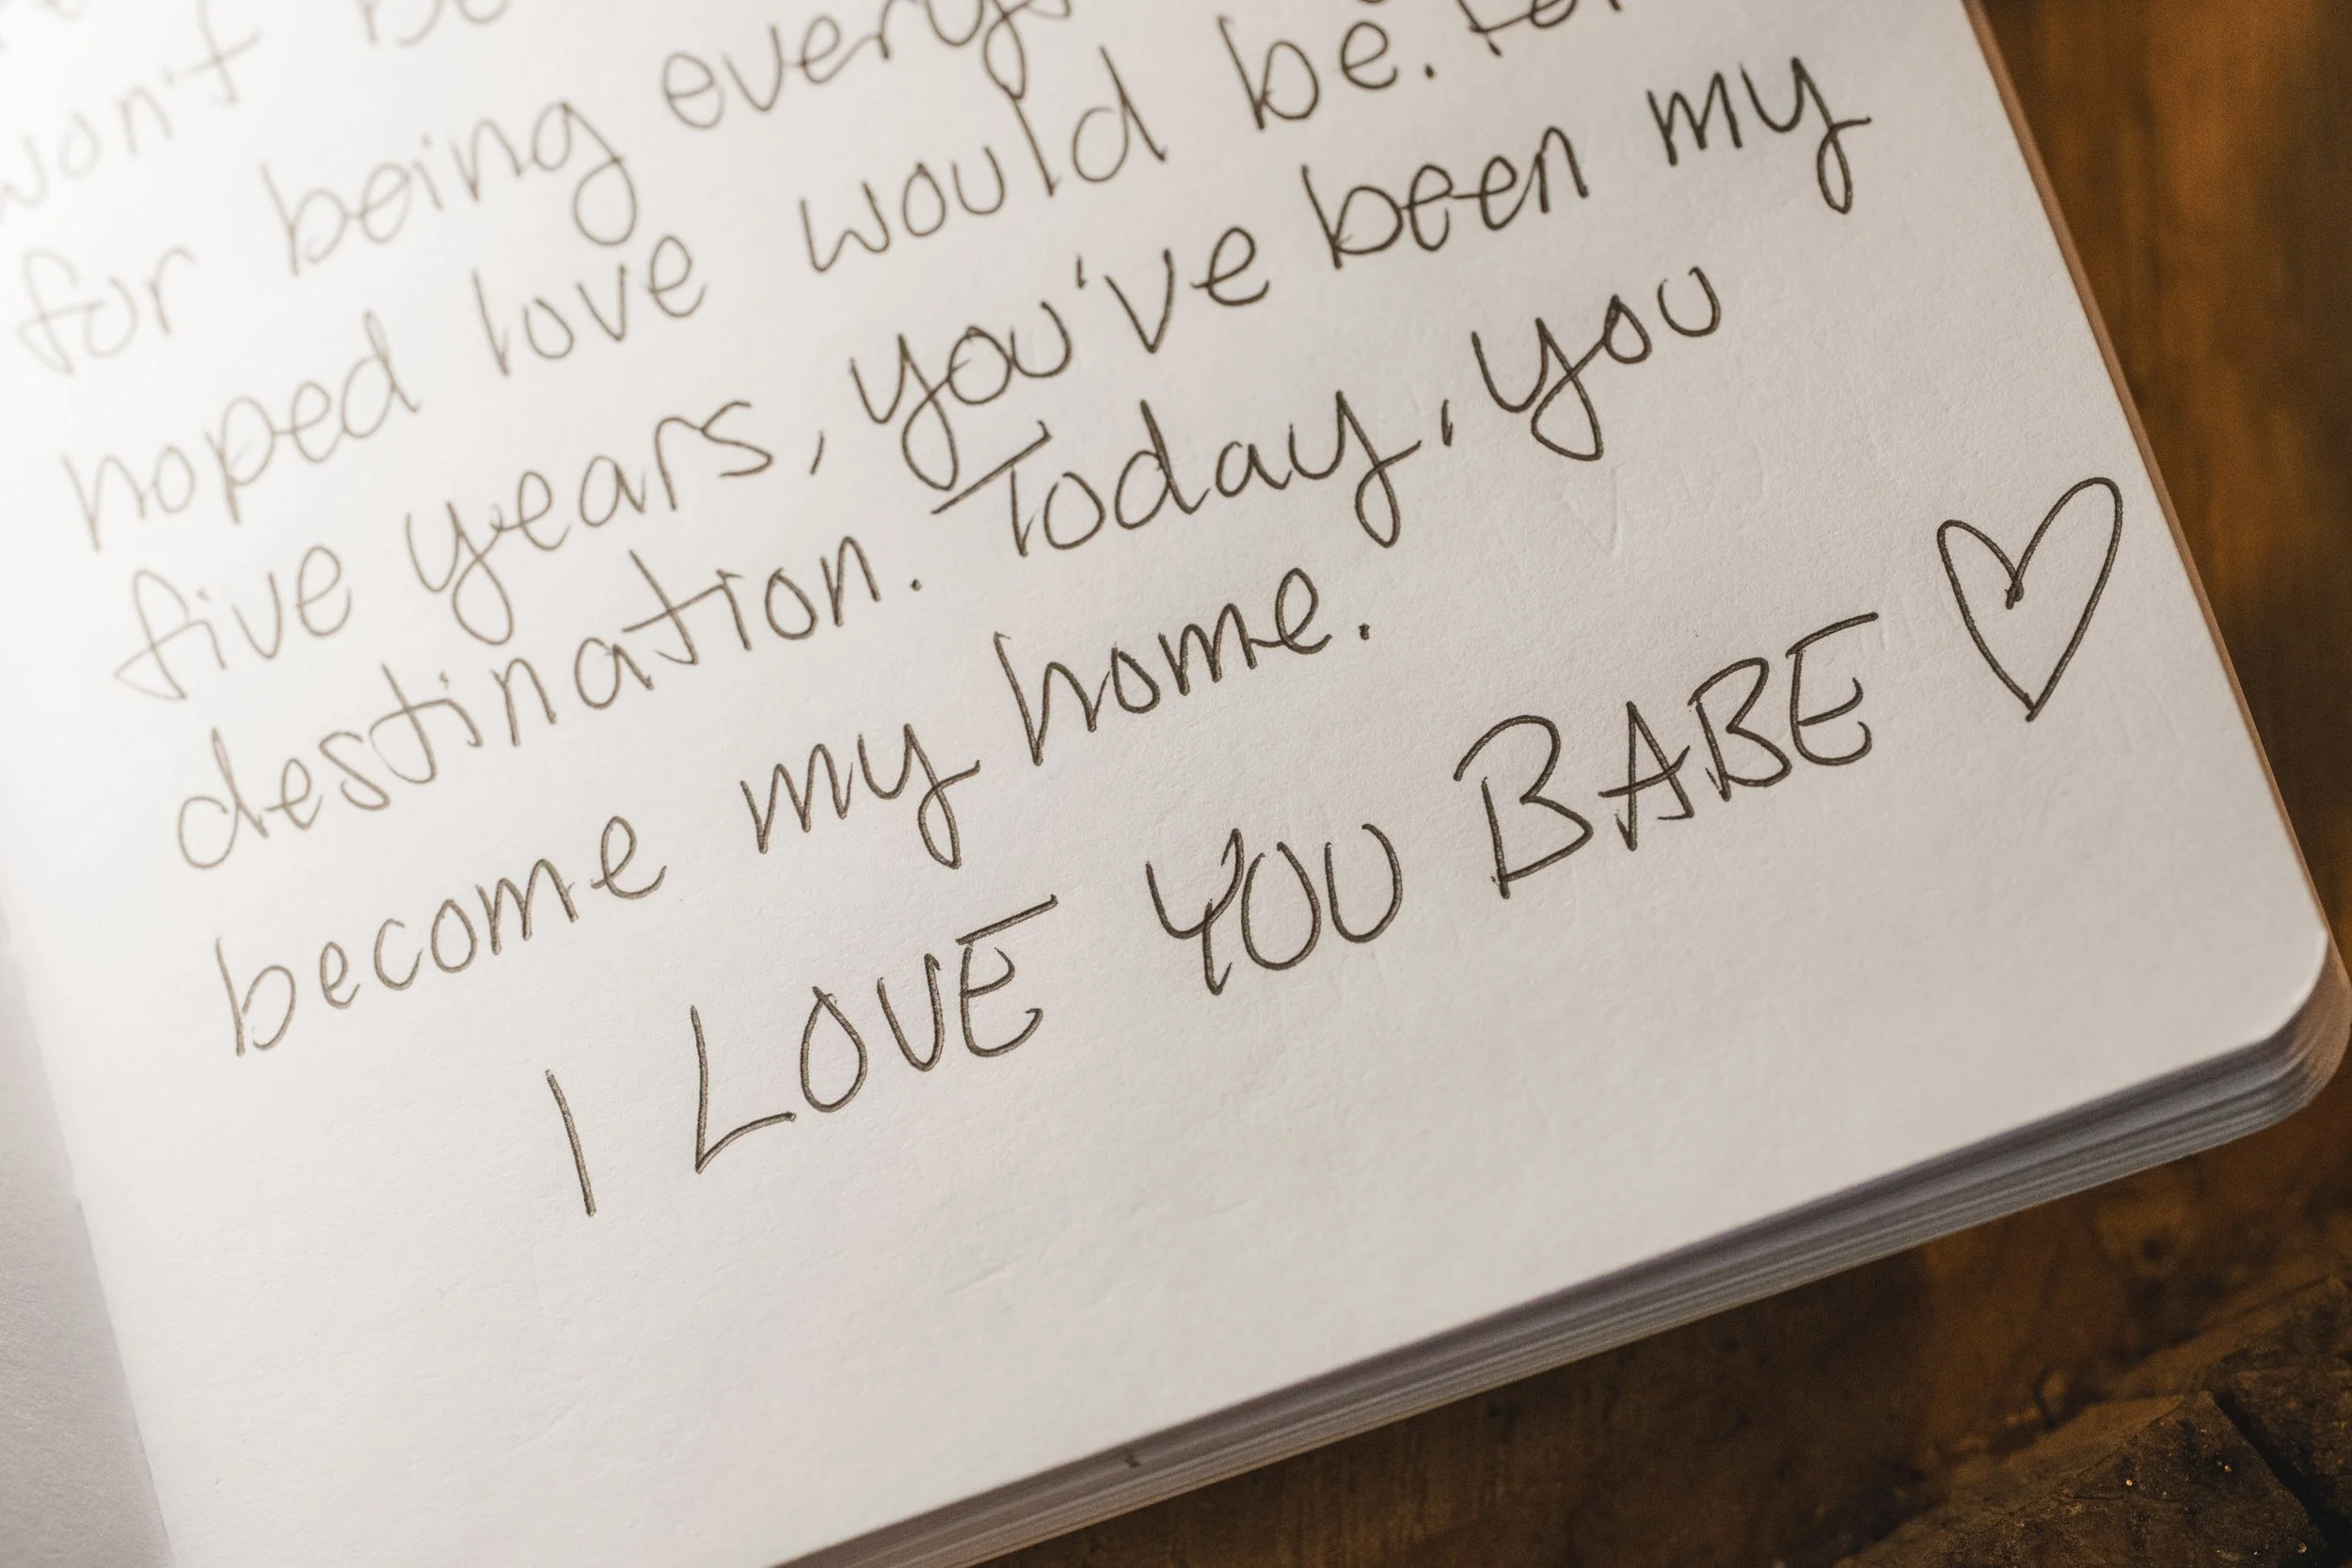 won't
for being every
hoped love would be. For
five years, you've been my
destination. Today, you
become my home.
I LOVE YOU BABE ♡